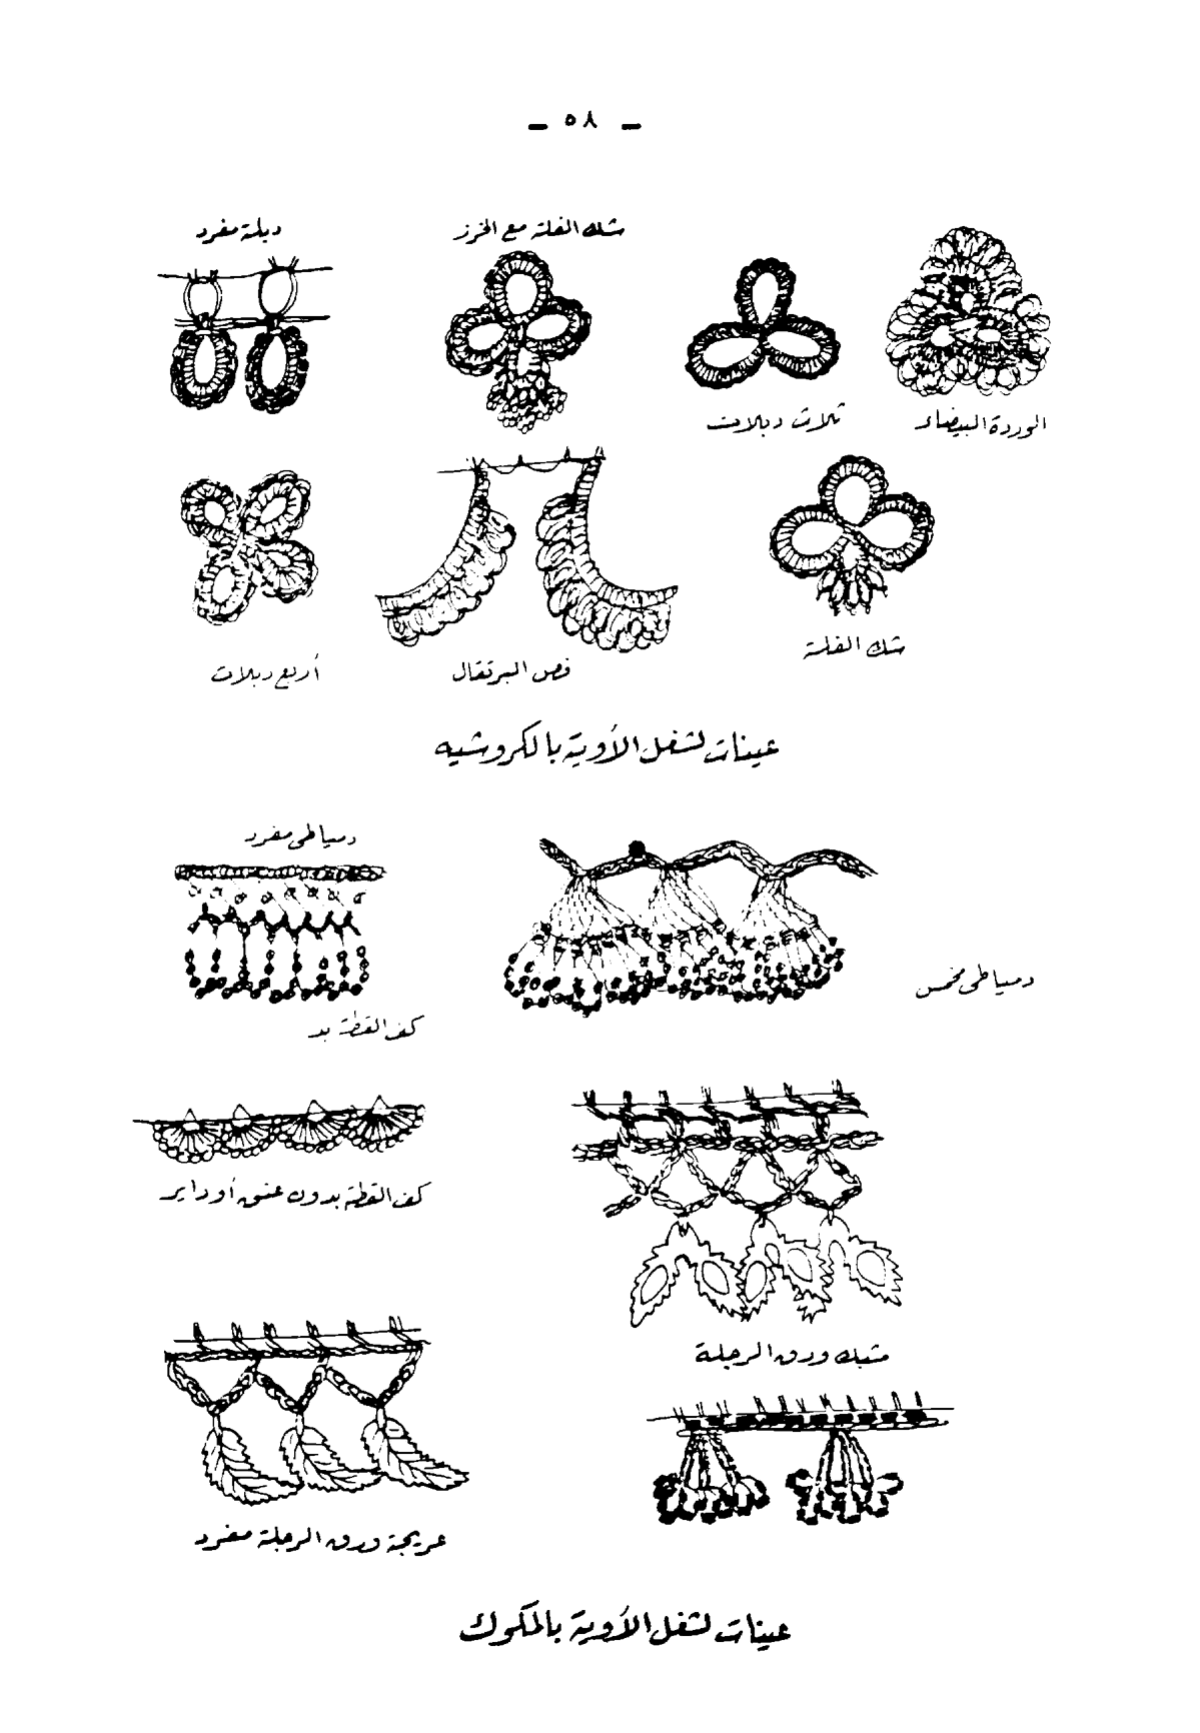 — ٥٨ —
دبلة مفرد
شك الفلة مع الخرز
ثلاث دبلات
الوردة البيضاء
أربع دبلات
فص البرتقال
شك الفلة
عينات لشغل الأوية بالكروشيه
دمياطى مفرد
دمياطى مخمس
كف القطة بد
كف القطة بدون عنق أو داير
مشبك ورق الرجلة
عريجة ورق الرجلة مفرد
عينات لشغل الأوية بالمكوك